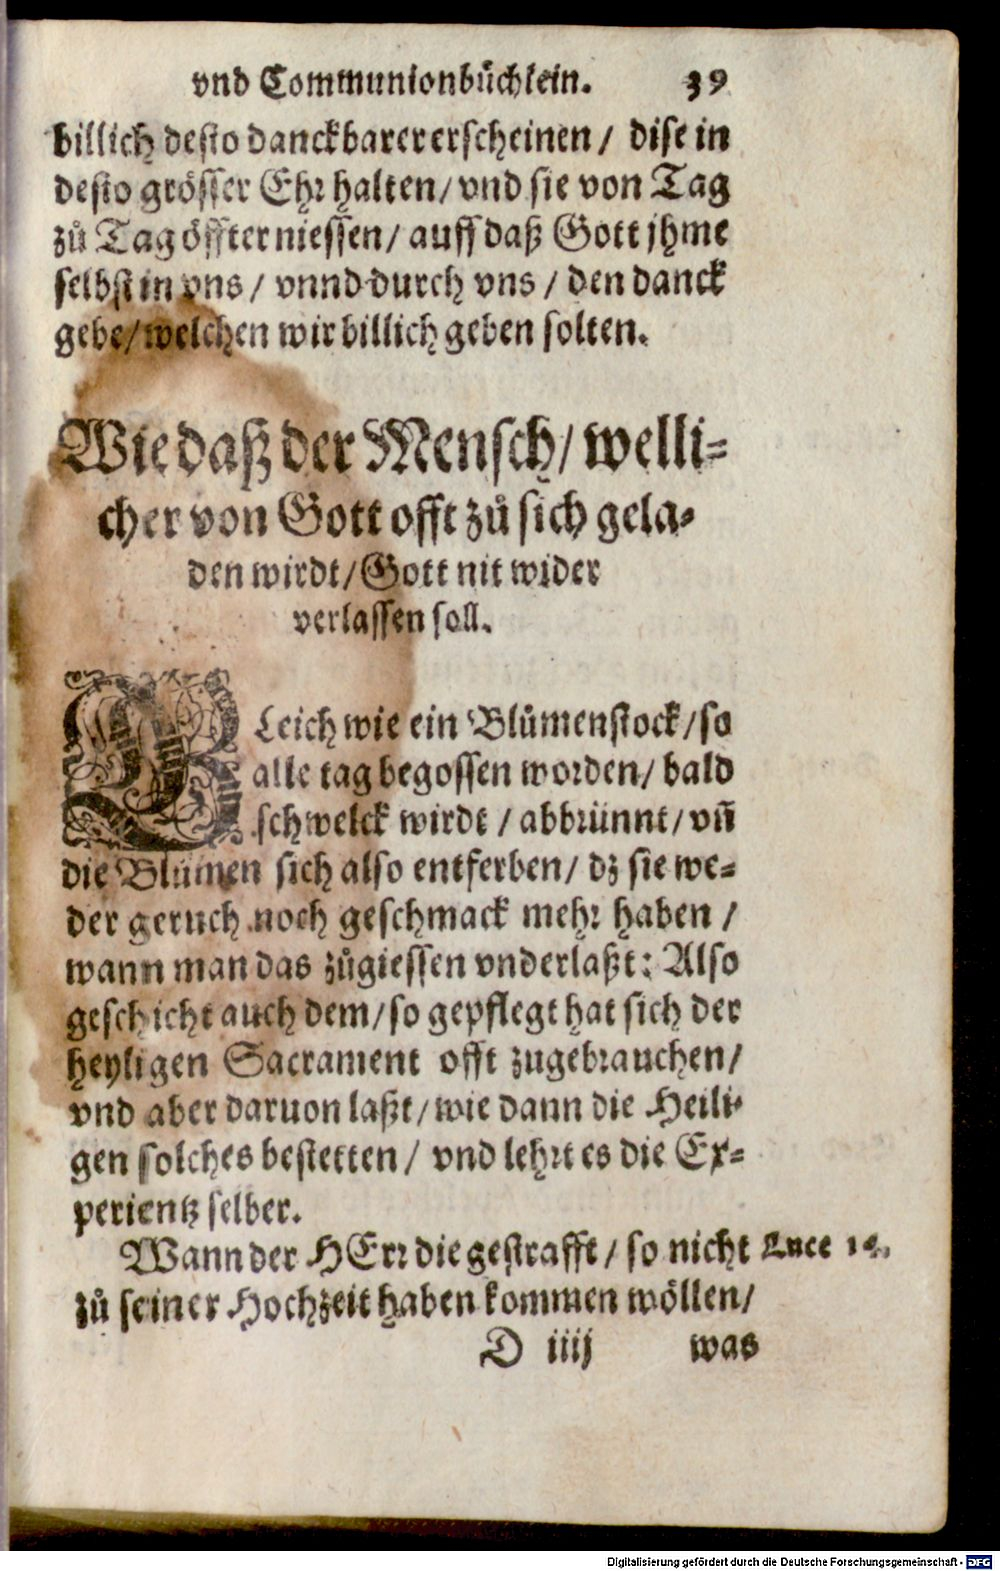 vnd Communionbüchlein. 39
billich desto danckbarer erscheinen / dise in
desto grösser Ehr halten / vnd sie von Tag
zů Tag öffter niessen / auff daß Gott jhme
selbst in vns / vnnd durch vns / den danck
gebe / welchen wir billich geben solten.
Wie daß der Mensch / welli-
cher von Gott offt zů sich gela-
den wirdt / Gott nit wider
verlassen soll.
GLeich wie ein Blůmenstock / so
alle tag begossen worden / bald
schwelck wirdt / abbrünnt / vñ
die Blůmen sich also entferben / dz sie we-
der geruch noch geschmack mehr haben /
wann man das zůgiessen vnderlaßt: Also
geschicht auch dem / so gepflegt hat sich der
heyligen Sacrament offt zugebrauchen /
vnd aber daruon laßt / wie dann die Heili-
gen solches bestetten / vnd lehrt es die Ex-
perientz selber.
Wann der HErr die gestrafft / so nicht Luce 14.
zů seiner Hochzeit haben kommen wöllen /
D iiij was
Digitalisierung gefördert durch die Deutsche Forschungsgemeinschaft - DFG